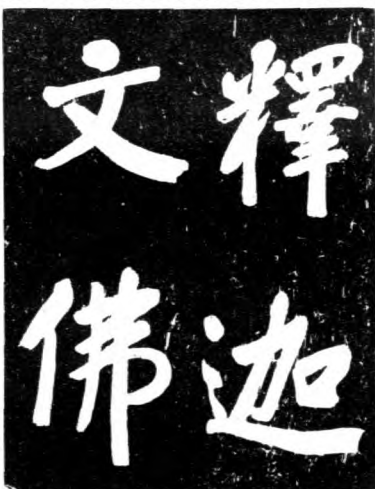 釋迦
文佛